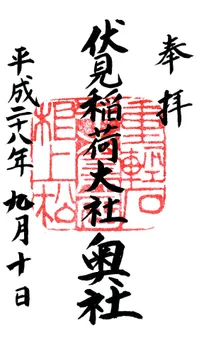 奉拝
伏見稲荷大社奥社
平成二十八年九月十日